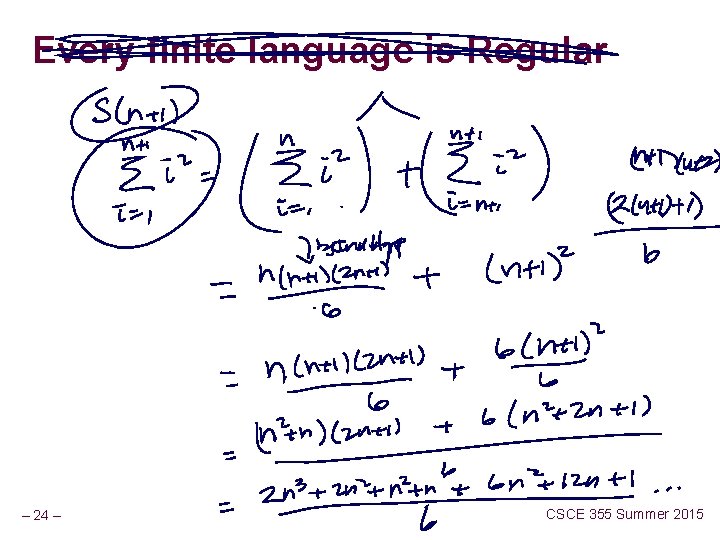 Every finite language is Regular
S(n+1)
n+1 n n+1
∑ i² = ( ∑ i² ) + ( ∑ i² ) (n+1)(n+2)
i=1 i=1 i=n+1 (2(n+1)+1)
6
= n(n+1)(2n+1) + (n+1)²
6
= n(n+1)(2n+1) + 6(n+1)²
6 6
= (n²+n)(2n+1) + 6(n²+2n+1)
6
= 2n³+2n²+n²+n + 6n²+12n+1 ...
6
– 24 –
CSCE 355 Summer 2015